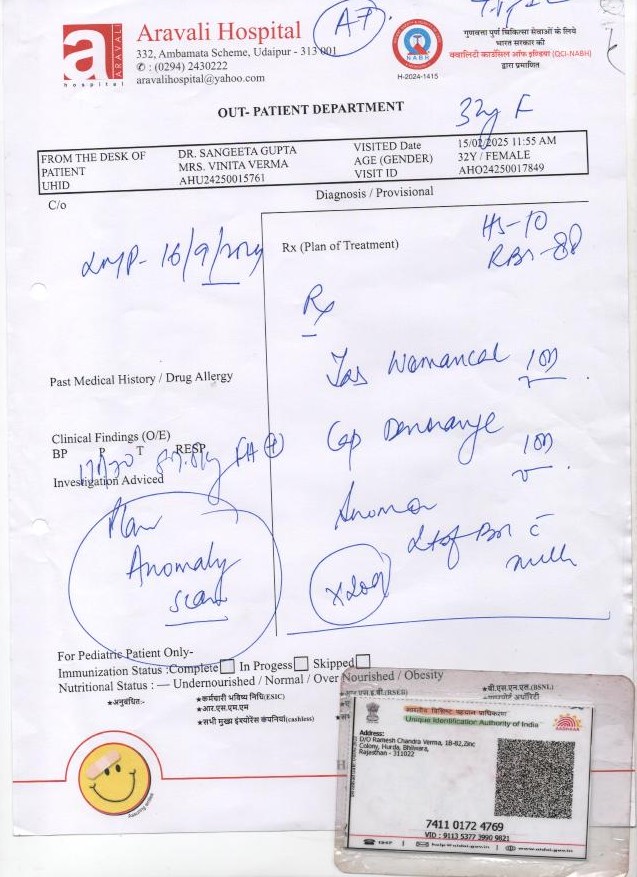 ARAVALI
a
hospital
Aravali Hospital
332, Ambamata Scheme, Udaipur - 313 001
: (0294) 2430222
aravalihospital@yahoo.com
NABH
H-2024-1415
गुणवत्ता पुर्ण चिकित्सा सेवाओं के लिये
भारत सरकार की
क्वालिटी काउंसिल ऑफ इण्डिया (QCI-NABH)
द्वारा प्रमाणित
OUT- PATIENT DEPARTMENT
32y F
FROM THE DESK OF DR. SANGEETA GUPTA VISITED Date 15/02/2025 11:55 AM
PATIENT MRS. VINITA VERMA AGE (GENDER) 32Y / FEMALE
UHID AHU24250015761 VISIT ID AHO24250017849
C/o
Diagnosis / Provisional
LMP- 16/9/2024
Rx (Plan of Treatment)
Hb-10
RBS-88
Rx
Past Medical History / Drug Allergy
Clinical Findings (O/E)
BP P T RESP
Investigation Adviced
Plan
Anomaly
scan
Tab 1OD
Cap 1OD
milk
For Pediatric Patient Only-
Immunization Status :Complete In Progess Skipped
Nutritional Status : — Undernourished / Normal / Over Nourished / Obesity
★अनुबंधित:-
★कर्मचारी भविष्य निधि(ESIC)
★आर.एस.एम.एम
★सभी मुख्य इंश्योरेंस कंपनियां(cashless)
(RSEB)
★बी.एस.एन.एल.(BSNL)
Assuring smiles
भारतीय विशिष्ट पहचान प्राधिकरण
Unique Identification Authority of India
AADHAAR
Address:
D/O Ramesh Chandra Verma, 1B-82,Zinc
Colony, Hurda, Bhilwara,
Rajasthan - 311022
7411 0172 4769
VID : 9113 5377 3990 9821
1947 | help@uidai.gov.in | www.uidai.gov.in